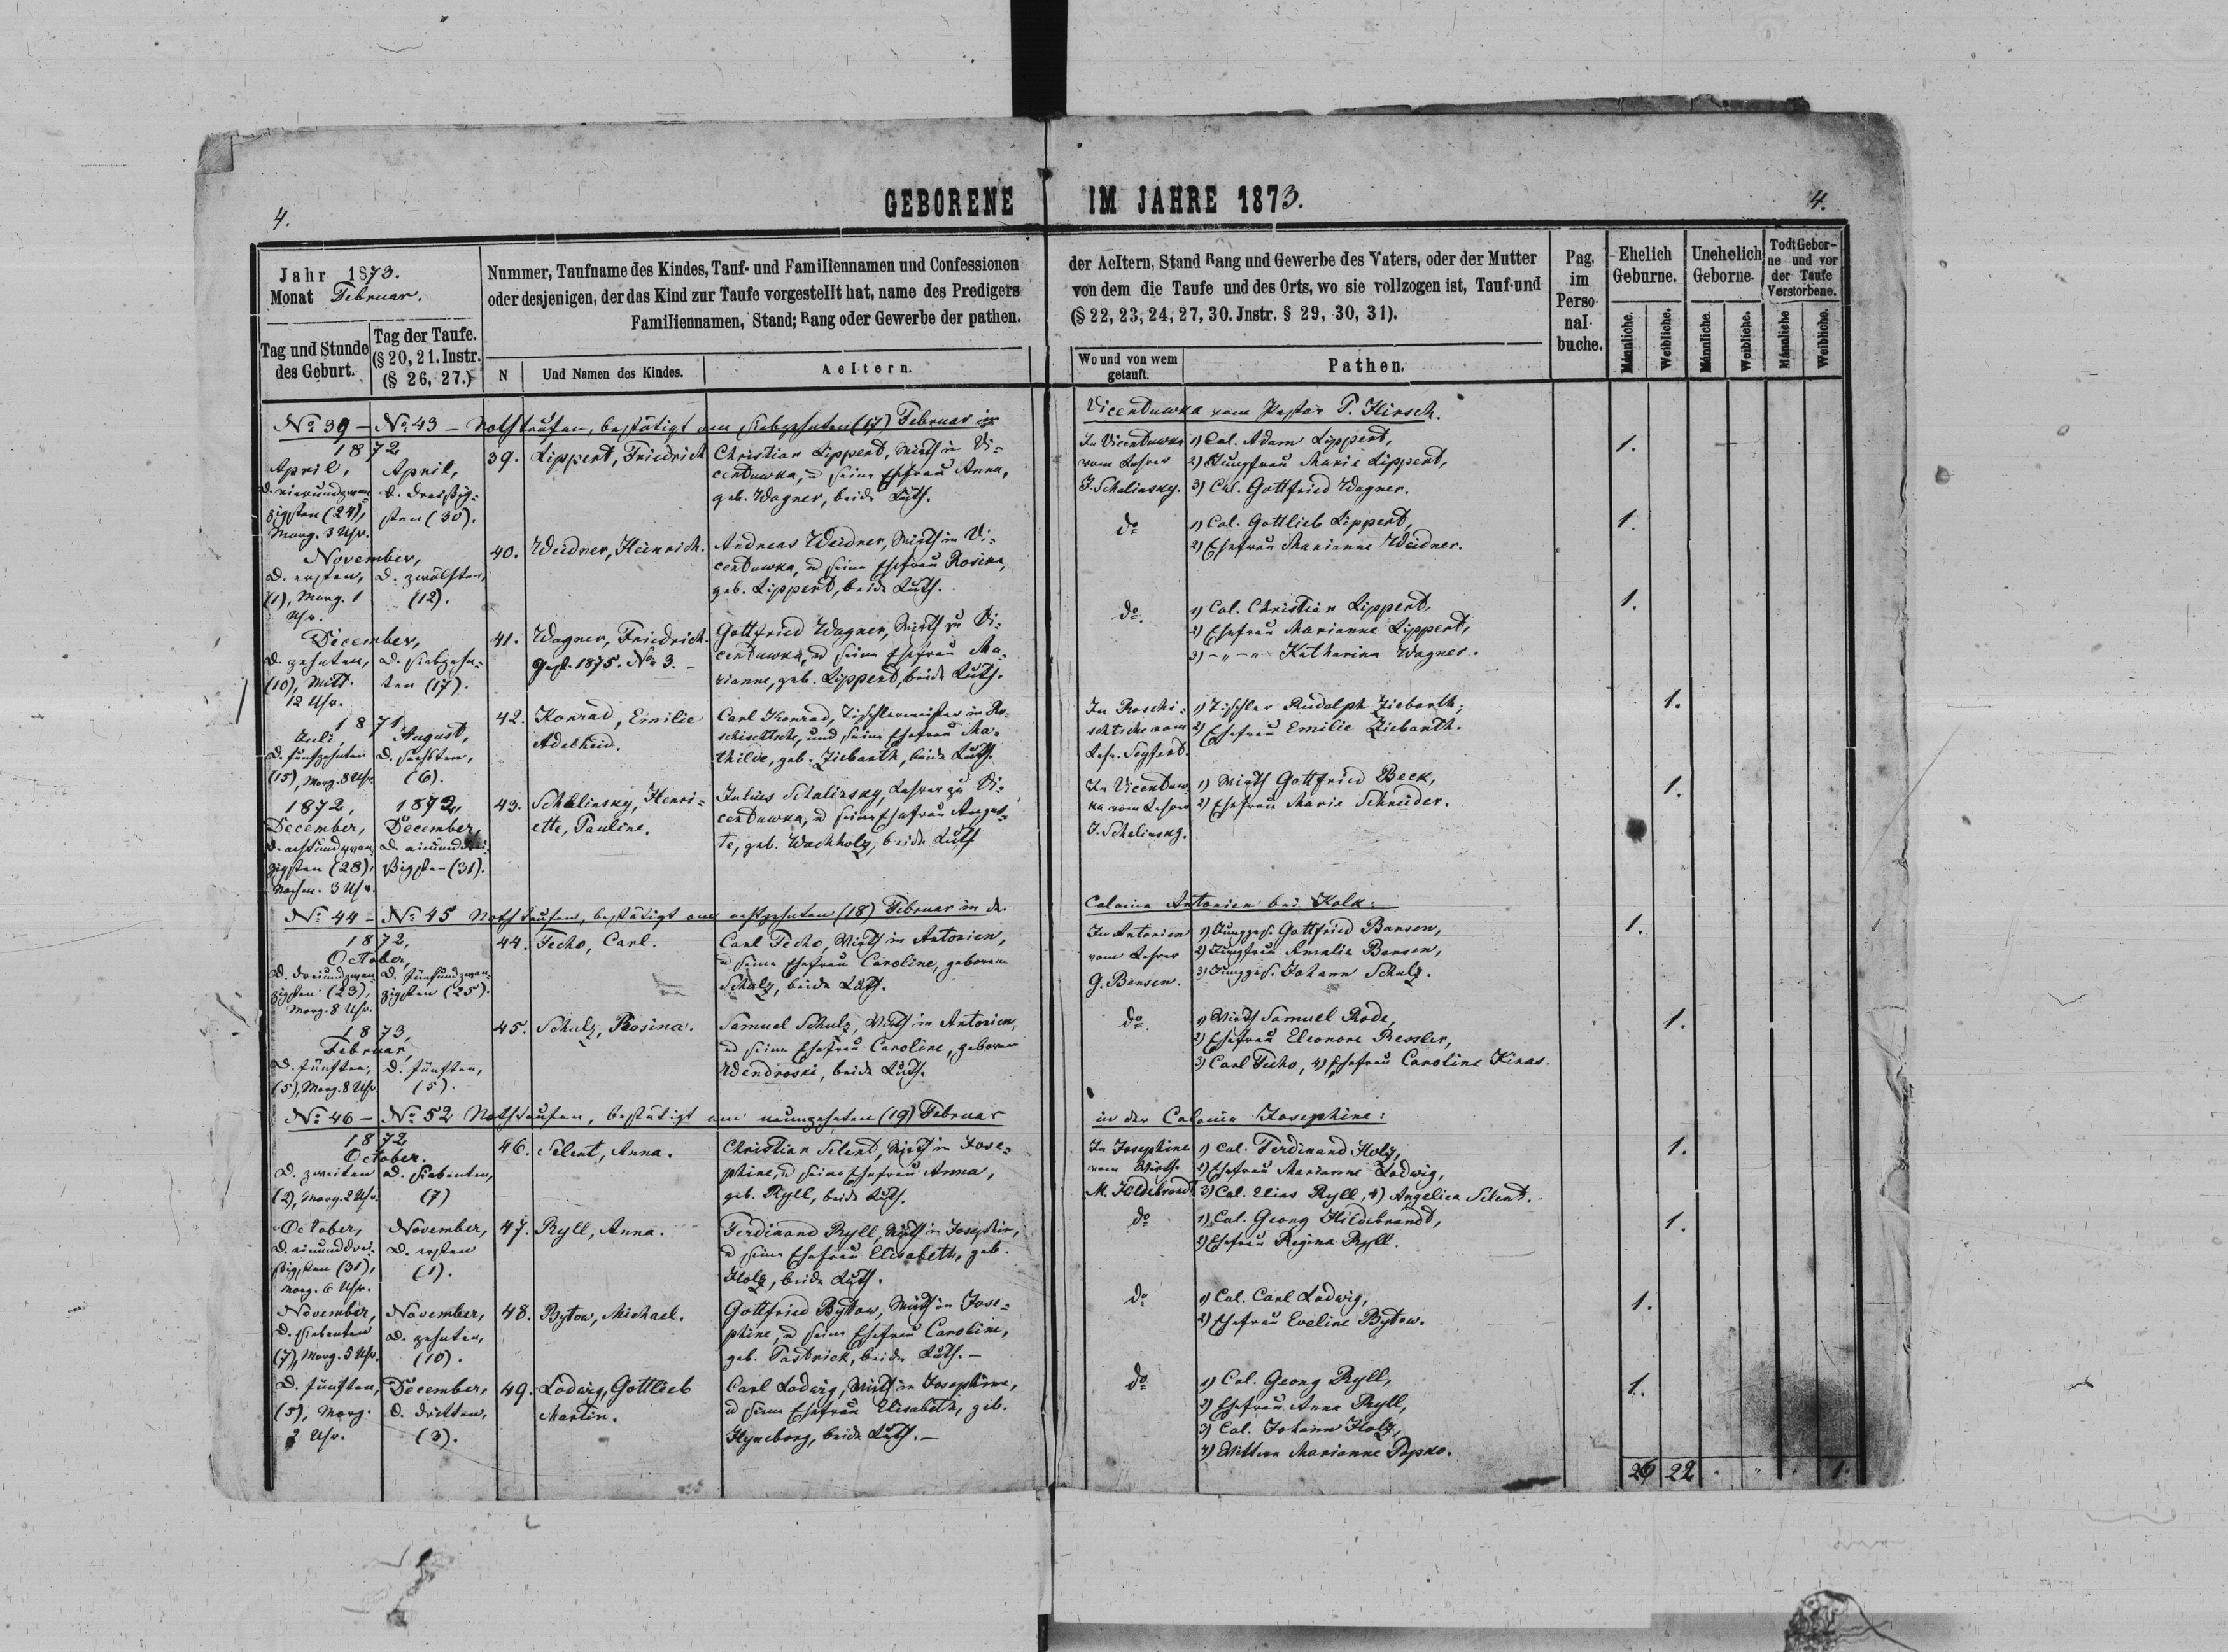 4.
GEBORENE IM JAHRE 1873.
4.
Jahr 1873.
Monat Februar.
Tag und Stunde
des Geburt.
Tag der Taufe.
(§ 20, 21. Instr.
(§ 26, 27.)
Nummer, Taufname des Kindes, Tauf- und Familiennamen und Confessionen
oder desjenigen, der das Kind zur Taufe vorgestellt hat, name des Predigers
Familiennamen, Stand; Rang oder Gewerbe der pathen.
N
Und Namen des Kindes.
Aeltern.
der Aeltern, Stand Rang und Gewerbe des Vaters, oder der Mutter
von dem die Taufe und des Orts, wo sie vollzogen ist, Tauf-und
(§ 22, 23, 24, 27, 30. Jnstr. § 29, 30, 31).
Wo und von wem
getauft.
Pathen.
Pag.
im
Perso-
nal-
buche.
Ehelich
Geburne.
Unehelich
Geborne.
Todt Gebor-
ne und vor
der Taufe
Verstorbene.
Männliche.
Weibliche.
Männliche.
Weibliche.
Männliche
Weibliche.
No 39 – No 43 – Nothtaufen, bestätigt am siebzehnten (17) Februar in
Vicentuwka vom Pastor P. Hirsch.
1872
April,
d. vierundzwan-
zigsten (24),
Morg. 3 Uhr.
April,
d. dreißig-
sten (30).
39.
Lippert, Friedrich
Christian Lippert, Wirth in Vi-
centuwka, u seine Ehefrau Anna,
geb. Wagner, beide Luth.
In Vicentuwka
vom Lehrer
J. Schalinsky.
1) Col. Adam Lippert,
2) Jungfrau Marie Lippert,
3) Col. Gottfried Wagner.
1.
November,
d. ersten,
(1), Morg. 1
Uhr.
d. zwölften,
(12).
40.
Weidner, Heinrich.
Andreas Weidner, Wirth in Vi-
centuwka, u seine Ehefrau Rosina,
geb. Lippert, beide Luth.
do
1) Col. Gottlieb Lippert,
2) Ehefrau Marianne Weidner.
1.
December,
d. zehnten,
(10), Mitt.
12 Uhr.
d. siebzehn-
ten (17).
41.
Wagner, Friedrich.
Gest. 1875. No 3. –
Gottfried Wagner, Wirth zu Vi-
centuwka, u seine Ehefrau Ma-
rianne, geb. Lippert, beide Luth.
do.
1) Col. Christian Lippert,
2) Ehefrau Marianne Lippert,
3) – " – " Katharina Wagner.
1.
1871
Juli
d. fünfzehnten
(15), Morg. 8 Uhr.
August,
d. sechsten,
(6).
42.
Konrad, Emilie
Adelheid.
Carl Konrad, Tischlermeister in Ro-
schischtsche, und seine Ehefrau Ma-
thilde, geb. Ziebarth, beide Luth.
In Roschi-
schtsche vom
1) Tischler Rudolph Ziebarth,
2) Ehefrau Emilie Ziebarth.
1.
1872,
December,
d. achtundzwan
zigsten (28),
Nachm. 3 Uhr.
1872,
December,
d. einunddrei-
ßigsten (31).
43.
Schalinsky, Henri-
ette, Pauline.
Julius Schalinsky, Lehrer zu Vi-
centuwka, u seine Ehefrau Augus-
te, geb. Wachholz, beide Luth
In Vicentuw-
ka vom Lehrer
J. Schalinsky.
1) Wirth Gottfried Beck,
2) Ehefrau Marie Schneider.
1.
No 44 – No 45 Nothtaufen, bestätigt am achtzehnten (18) Februar in der
Colonie Antonien bei Kolk.
1872,
October,
d. dreiundzwan-
zigsten (23),
Morg. 8 Uhr.
d. fünfundzwan-
zigsten (25).
44.
Techo, Carl.
Carl Techo, Wirth in Antonien,
u seine Ehefrau Caroline, geborene
Schulz, beide Luth.
In Antonien
vom Lehrer
G. Bansen.
1) Jungges. Gottfried Bansen,
2) Jungfrau Amalie Bansen,
3) Jungges. Johann Schulz.
1.
1873,
Februar,
d. fünften,
(5), Morg. 8 Uhr
d. fünften,
(5).
45.
Schulz, Rosina.
Samuel Schulz, Wirth in Antonien,
u seine Ehefrau Caroline, geborene
Wendroski, beide Luth.
do.
1) Wirth Samuel Rode,
2) Ehefrau Eleonore Ressler,
3) Carl Techo, 4) Ehefrau Caroline Kinas.
1.
No 46 – No 52 Nothtaufen, bestätigt am neunzehnten (19) Februar
in der Colonie Josephine:
1872
October.
d. zweiten
(2), Morg. 2 Uhr.
d. siebenten,
(7)
46.
Selent, Anna.
Christian Selent, Wirth in Jose-
phine, u seine Ehefrau Anna,
geb. Ryll, beide Luth.
In Josephine
vom Wirth
M. Hildebrandt
1) Col. Ferdinand Holz,
2) Ehefrau Marianne Ladwig,
3) Col. Elias Ryll, 4) Angelica Selent.
1.
October,
d. einunddrei-
ßigsten (31),
Morg. 6 Uhr.
November,
d. ersten
(1).
47.
Ryll, Anna.
Ferdinand Ryll, Wirth in Josephin,
u seine Ehefrau Elisabeth, geb.
Holz, beide Luth.
do
1) Col. Georg Hildebrandt,
2) Ehefrau Regina Ryll.
1.
November,
d. siebenten
(7), Morg. 5 Uhr.
November,
d. zehnten,
(10).
48.
Bytow, Michael.
Gottfried Bytow, Wirth in Jose-
phine, u seine Ehefrau Caroline,
geb. Pastrick, beide Luth. –
do
1) Col. Carl Ladwig,
2) Ehefrau Eveline Bytow.
1.
d. fünften,
(5), Morg.
Uhr.
December,
d. dritten,
(3).
49.
Ladwig, Gottlieb
Martin.
Carl Ladwig, Wirth in Josephine,
u seine Ehefrau Elisabeth, geb.
beide Luth. –
do
1) Col. Georg Ryll,
2) Ehefrau Anna Ryll,
3) Col. Johann Holz,
4) Wittwe Marianne Popko.
1.
22
1.